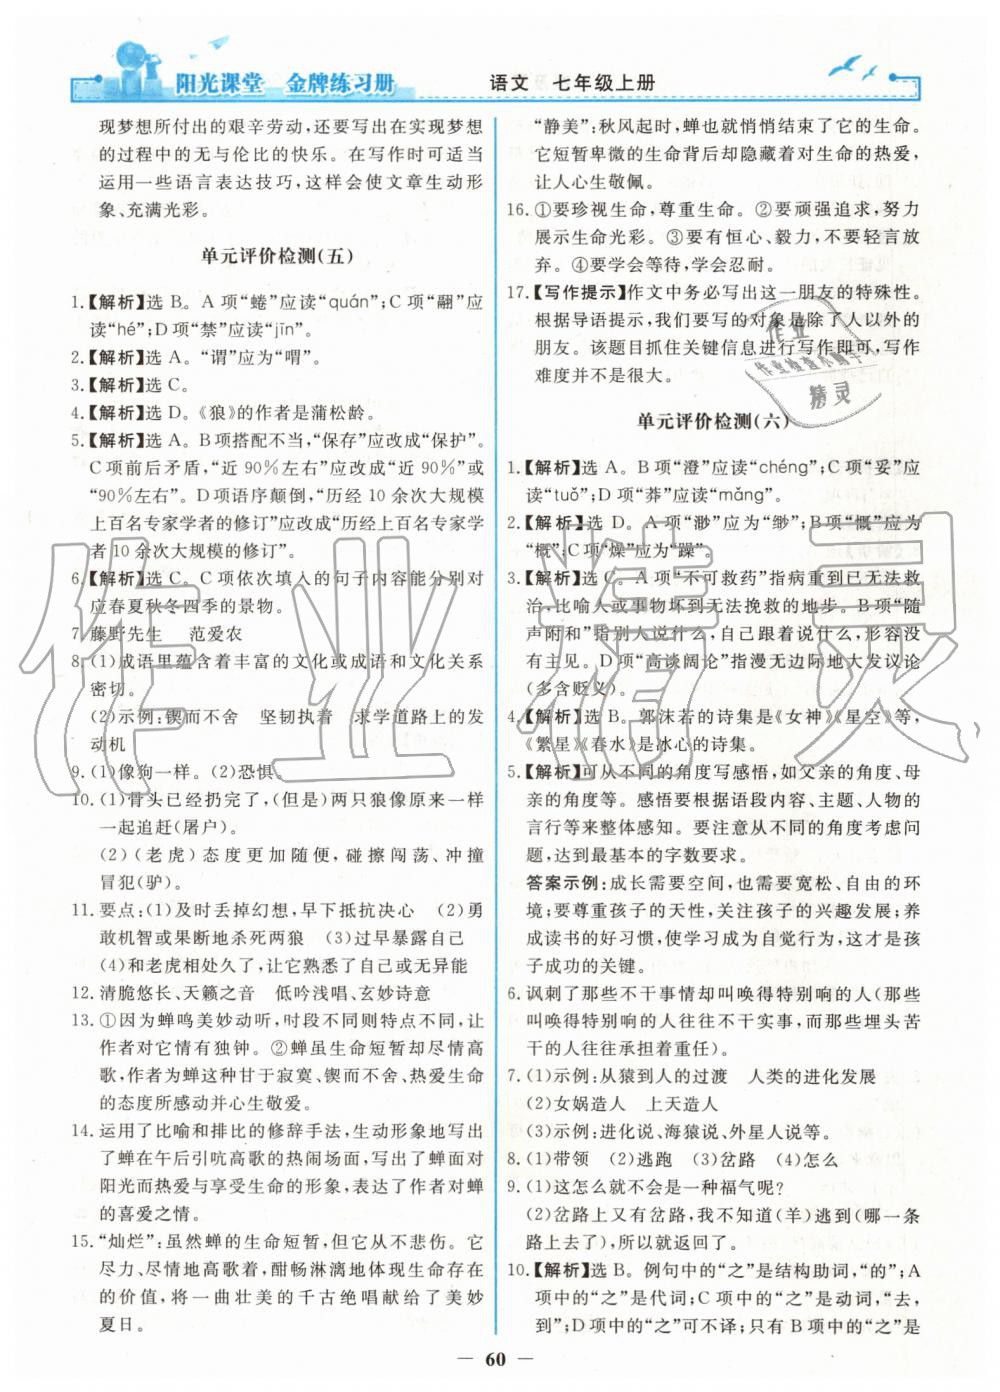 阳光课堂 金牌练习册
语文 七年级上册
现梦想所付出的艰辛劳动，还要写出在实现梦想
的过程中的无与伦比的快乐。在写作时可适当
运用一些语言表达技巧，这样会使文章生动形
象、充满光彩。
单元评价检测(五)
1.【解析】选 B。A 项“蜷”应读“quán”；C 项“翩”应
读“hé”；D 项“禁”应读“jīn”。
2.【解析】选 A。“谓”应为“喟”。
3.【解析】选 C。
4.【解析】选 D。《狼》的作者是蒲松龄。
5.【解析】选 A。B 项搭配不当，“保存”应改成“保护”。
C 项前后矛盾，“近 90％左右”应改成“近 90％”或
“90％左右”。D 项语序颠倒，“历经 10 余次大规模
上百名专家学者的修订”应改成“历经上百名专家学
者 10 余次大规模的修订”。
6.【解析】选 C。C 项依次填入的句子内容能分别对
应春夏秋冬四季的景物。
7. 藤野先生 范爱农
8. (1)成语里蕴含着丰富的文化或成语和文化关系
密切。
(2)示例：锲而不舍 坚韧执着 求学道路上的发
动机
9. (1)像狗一样。(2)恐惧。
10. (1)骨头已经扔完了，(但是)两只狼像原来一样
一起追赶(屠户)。
(2)(老虎)态度更加随便，碰擦闯荡、冲撞
冒犯(驴)。
11. 要点：(1)及时丢掉幻想，早下抵抗决心 (2)勇
敢机智或果断地杀死两狼 (3)过早暴露自己
(4)和老虎相处久了，让它熟悉了自己或无异能
12. 清脆悠长、天籁之音 低吟浅唱、玄妙诗意
13. ①因为蝉鸣美妙动听，时段不同则特点不同，让
作者对它情有独钟。②蝉虽生命短暂却尽情高
歌，作者对蝉这种甘于寂寞、锲而不舍、热爱生命
的态度所感动并心生敬爱。
14. 运用了比喻和排比的修辞手法，生动形象地写出
了蝉在午后引吭高歌的热闹场面，写出了蝉面对
阳光而热爱与享受生命的形象，表达了作者对蝉
的喜爱之情。
15. “灿烂”：虽然蝉的生命短暂，但它从不悲伤。它
尽力、尽情地高歌着，酣畅淋漓地体现生命存在
的价值，将一曲壮美的千古绝唱献给了美妙
夏日。
“静美”：秋风起时，蝉也就悄悄结束了它的生命。
它短暂卑微的生命背后却隐藏着对生命的热爱，
让人心生敬佩。
16. ①要珍视生命，尊重生命。②要顽强追求，努力
展示生命光彩。③要有恒心、毅力，不要轻言放
弃。④要学会等待，学会忍耐。
17.【写作提示】作文中务必写出这一朋友的特殊性。
根据导语提示，我们要写的对象是除了人以外的
朋友。该题目抓住关键信息进行写作即可，写作
难度并不是很大。
单元评价检测(六)
1.【解析】选 A。B 项“澄”应读“chéng”；C 项“妥”应
读“tuǒ”；D 项“莽”应读“mǎng”。
2.【解析】选 D。A 项“渺”应为“缈”；B 项“慨”应为
“概”；C 项“燥”应为“躁”。
3.【解析】选 C。A 项“不可救药”指病重到已无法救
治，比喻人或事物坏到无法挽救的地步。B 项“随
声附和”指别人说什么，自己跟着说什么，形容没
有主见。D 项“高谈阔论”指漫无边际地大发议论
(多含贬义)。
4.【解析】选 B。郭沫若的诗集是《女神》《星空》等，
《繁星》《春水》是冰心的诗集。
5.【解析】可从不同的角度写感悟，如父亲的角度、母
亲的角度等。感悟要根据语段内容、主题、人物的
言行等来整体感知。要注意从不同的角度考虑问
题，达到最基本的字数要求。
答案示例：成长需要空间，也需要宽松、自由的环
境；要尊重孩子的天性，关注孩子的兴趣发展；养
成读书的好习惯，使学习成为自觉行为，这才是孩
子成功的关键。
6. 讽刺了那些不干事情却叫唤得特别响的人(那些
叫唤得特别响的人往往不干实事，而那些埋头苦
干的人往往承担着重任)。
7. (1)示例：从猿到人的过渡 人类的进化发展
(2)女娲造人 上天造人
(3)示例：进化说、海猿说、外星人说等。
8. (1)带领 (2)逃跑 (3)岔路 (4)怎么
9. (1)这怎么就不会是一种福气呢？
(2)岔路上又有岔路，我不知道(羊)逃到(哪一条
路上去了)，所以就返回了。
10.【解析】选 B。例句中的“之”是结构助词，“的”；A
项中的“之”是代词；C 项中的“之”是动词，“去，
到”；D 项中的“之”可不译；只有 B 项中的“之”是
— 60 —
作业精灵
作业
作业检查小助手
精灵